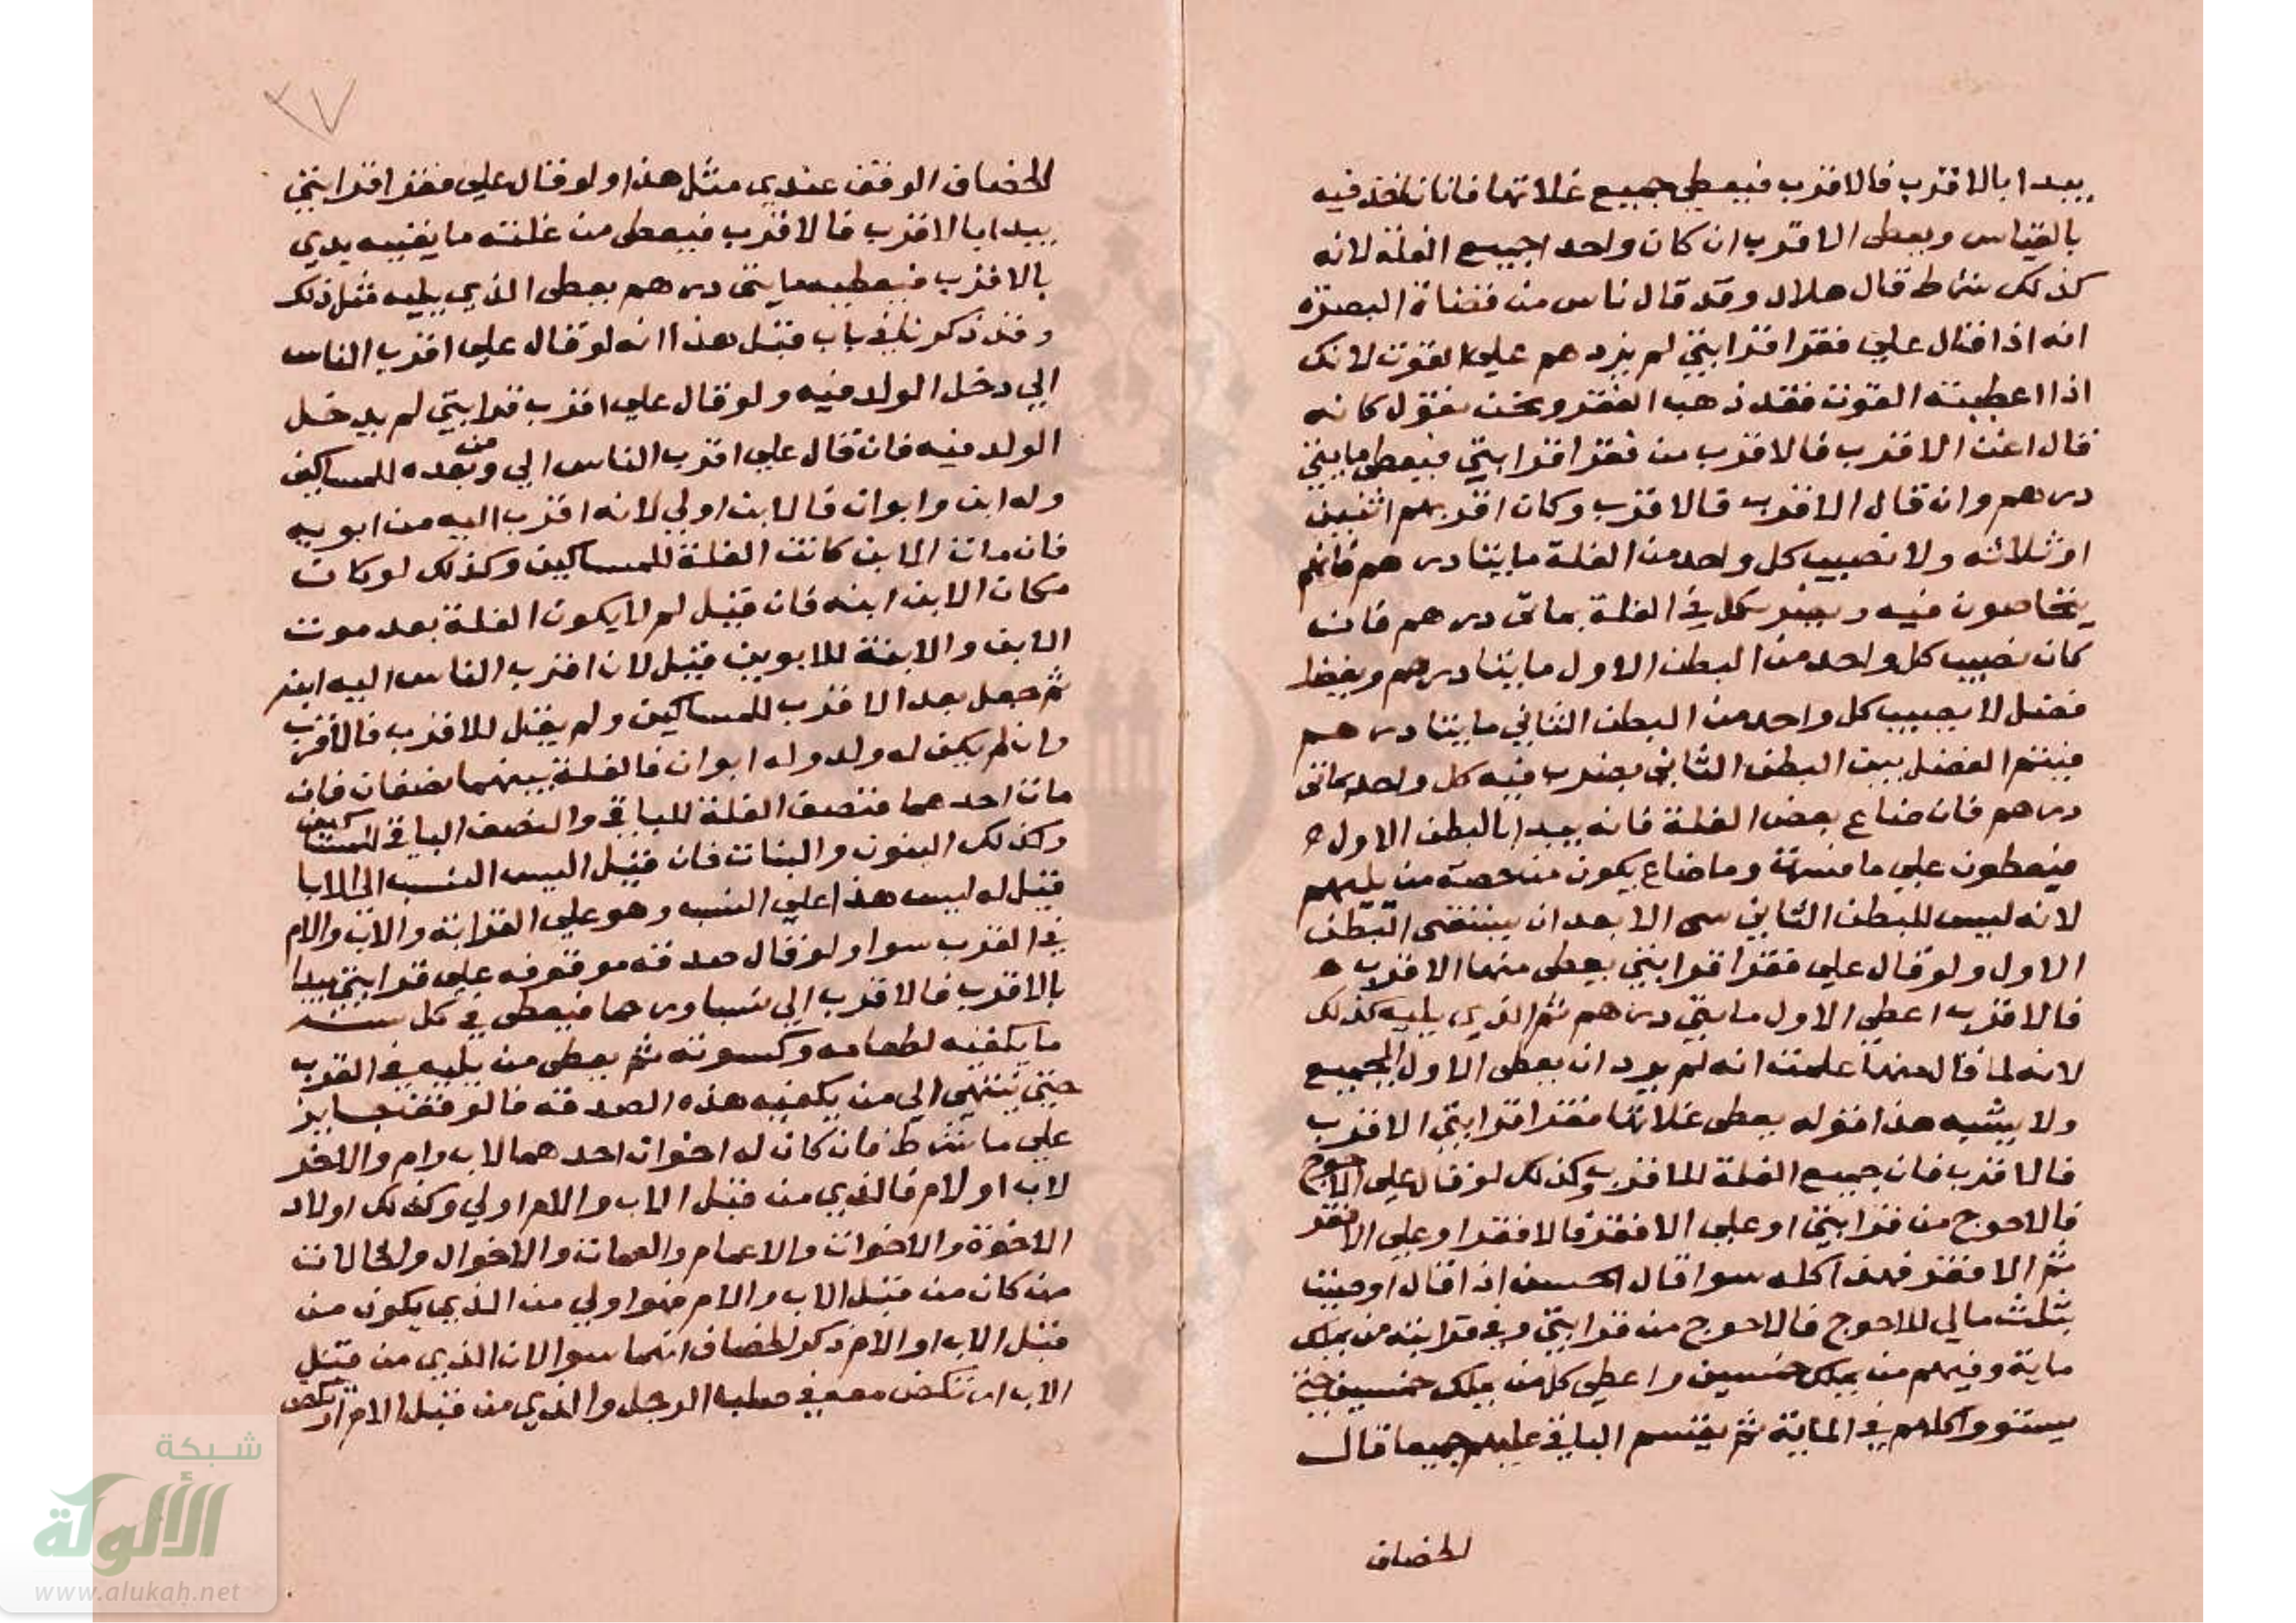 يبدا بالاقرب فالاقرب فيعطي جميع غلاتها فانا ناخذ فيه
بالقياس ويعطى الاقرب ان كان واحدا جميع الغلة لانه
كذلك شرط قال هلال وقد قال ناس من قضاة البصرة
انه اذا قال علي فقرا قرابتي لم يزدهم علي القوت لانك
اذا اعطيته القوت فقد ذهب الفقر ونحن نقول كانه
قال اغن الاقرب فالاقرب من فقرا قرابتي فيعطى مايتي
درهم وان قال الاقرب فالاقرب وكان اقربهم اثنين
او ثلاثه ولا نصيب كل واحد من الغلة مايتا درهم فانهم
يتحاصون فيه ويضرب كل في الغلة بماتى درهم فان
كان نصيب كل واحد من البطن الاول مايتا درهم ويفضل
فضل لا يصيب كل واحد من البطن الثاني مايتا درهم
فيقسم الفضل بين البطن الثاني يضرب فيه كل واحد بماتى
درهم فان ضاع بعض الغلة فانه يبدا بالبطن الاول
فيعطون علي ما قسمة وما ضاع يكون من حصة من يليهم
لانه ليس للبطن الثاني شى الا بعد ان يستقضى البطن
الاول ولو قال علي فقرا قرابتي يعطى منها الاقرب
فالاقرب اعطي الاول مايتي درهم ثم الذي يليه كذلك
لانه لما قال منها علمت انه لم يرد ان يعطى الاول الجميع
ولا يشبه هذا قوله يعطى غلاتها فقرا قرابتي الاقرب
فالاقرب فان جميع الغلة للاقرب وكذلك لو قال علي الاحوج
فالاحوج من قرابتي او علي الافقر فالافقر او علي الافقر
ثم الافقر فهذا كله سوا قال الحسن اذا قال اوصيت
بثلث مالي للاحوج فالاحوج من قرابتي وفي قرابته من يملك
ماية وفيهم من يملك خمسين واعطي كل من يملك خمسين حتى
يستووا كلهم في الماية ثم يقتسم الباقي عليهم جميعا قال
الخصاف
٣٧
الخصاف الوقف عندي مثل هذا ولو قال علي فقرا قرابتي
يبدا بالاقرب فالاقرب فيعطى من غلته ما يغنيه يبدي
بالاقرب فيعطيه مايتى درهم يعطى الذي يليه مثل ذلك
وقد ذكرنا في باب قبل هذا انه لو قال علي اقرب الناس
الي دخل الولد فيه ولو قال علي اقرب قرابتي لم يدخل
الولد فيه فان قال علي اقرب الناس الي ومن بعده للمساكين
وله ابن وابوان فالابن اولي لانه اقرب اليه من ابويه
فان مات الابن كانت الغلة للمساكين وكذلك لو كان
مكان الابن ابنه فان قيل لم لا يكون الغلة بعد موت
الابن والابنة للابوين قيل لان اقرب الناس اليه ابنه
ثم جعل بعد الاقرب للمساكين ولم يقل للاقرب فالاقرب
وان لم يكن له ولد وله ابوان فالغلة بينهما نصفان فان
مات احدهما فنصف الغلة للباقي والنصف الباقي للمساكين
وكذلك البنون والبنات فان قيل اليس النسب الي الابا
قيل له ليس هذا علي النسب وهو علي القرابة والاب والام
في القرب سوا ولو قال صدقه موقوفه علي قرابتي يبدا
بالاقرب فالاقرب الي نسبا ورحما فيعطى في كل سنة
ما يكفيه لطعامه وكسوته ثم يعطى من يليه في القرب
حتى تنتهي الي من يكفيه هذه الصدقه فالوقف جايز
علي ما شرط فان كان له اخوان احدهما لاب وام والاخر
لاب او لام فالذي من قبل الاب والام اولي وكذلك اولاد
الاخوة والاخوات والاعمام والعمات والاخوال والخالات
من كان من قبل الاب والام فهوا ولي من الذي يكون من
قبل الاب او الام ذكر الخصاف انهما سوا لان الذي من قبل
الاب ارتكض معه في صلب الرجل والذي من قبل الام ارتكض
شبكة
الألوكة
www.alukah.net